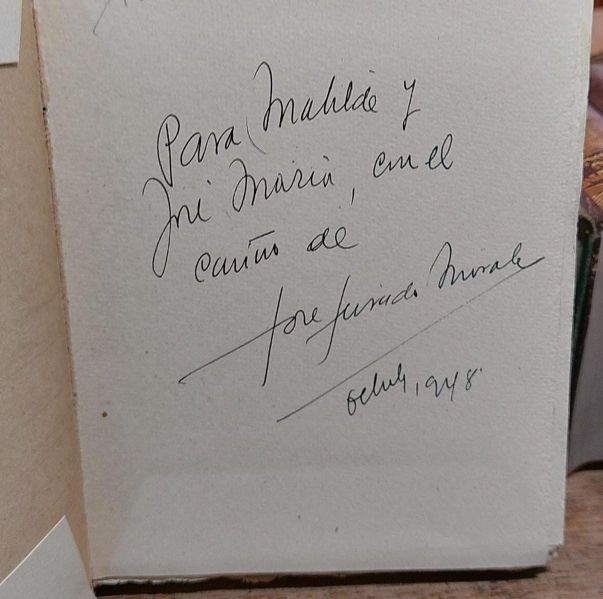 Para Matilde y
José María, con el
cariño de
José Jurado Morales
Octubre, 1948.